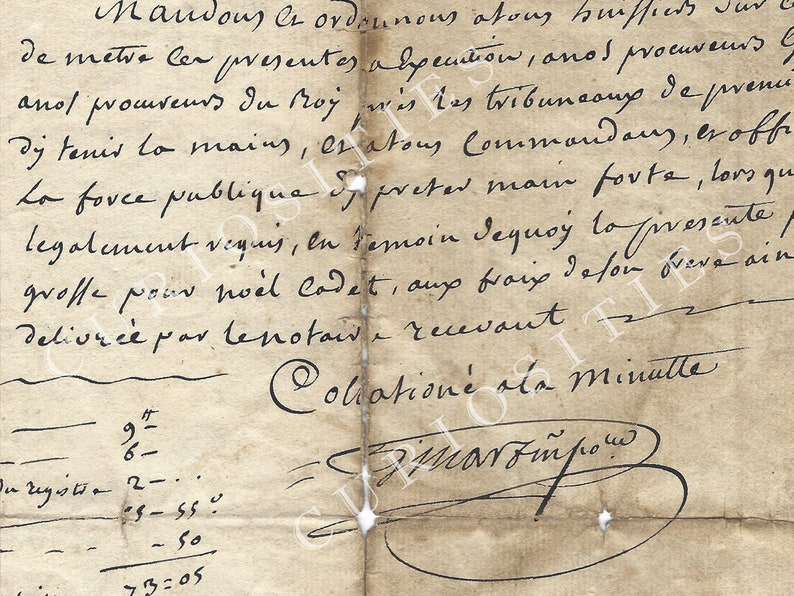 Mandons et ordonnons atous huissiers sur
de metre les presentes a Execution, anos procureurs
anos procureurs du Roy près les tribuneaux de
dy tenir la mains, et atous Commandans, et
la force publique dy preter main forte, lorsqu
legalement requis, en temoin dequoy la presente
grosse pour noël Cadet, aux fraix deson frere ain
delivrée par lenotaire recevant
Colationé ala Minutte
9 ʰ
6 -
du registre 2 - . .
55
- 50
73 = 05
CURIOSITIES
CURIOSITIES
CURIOSITIES